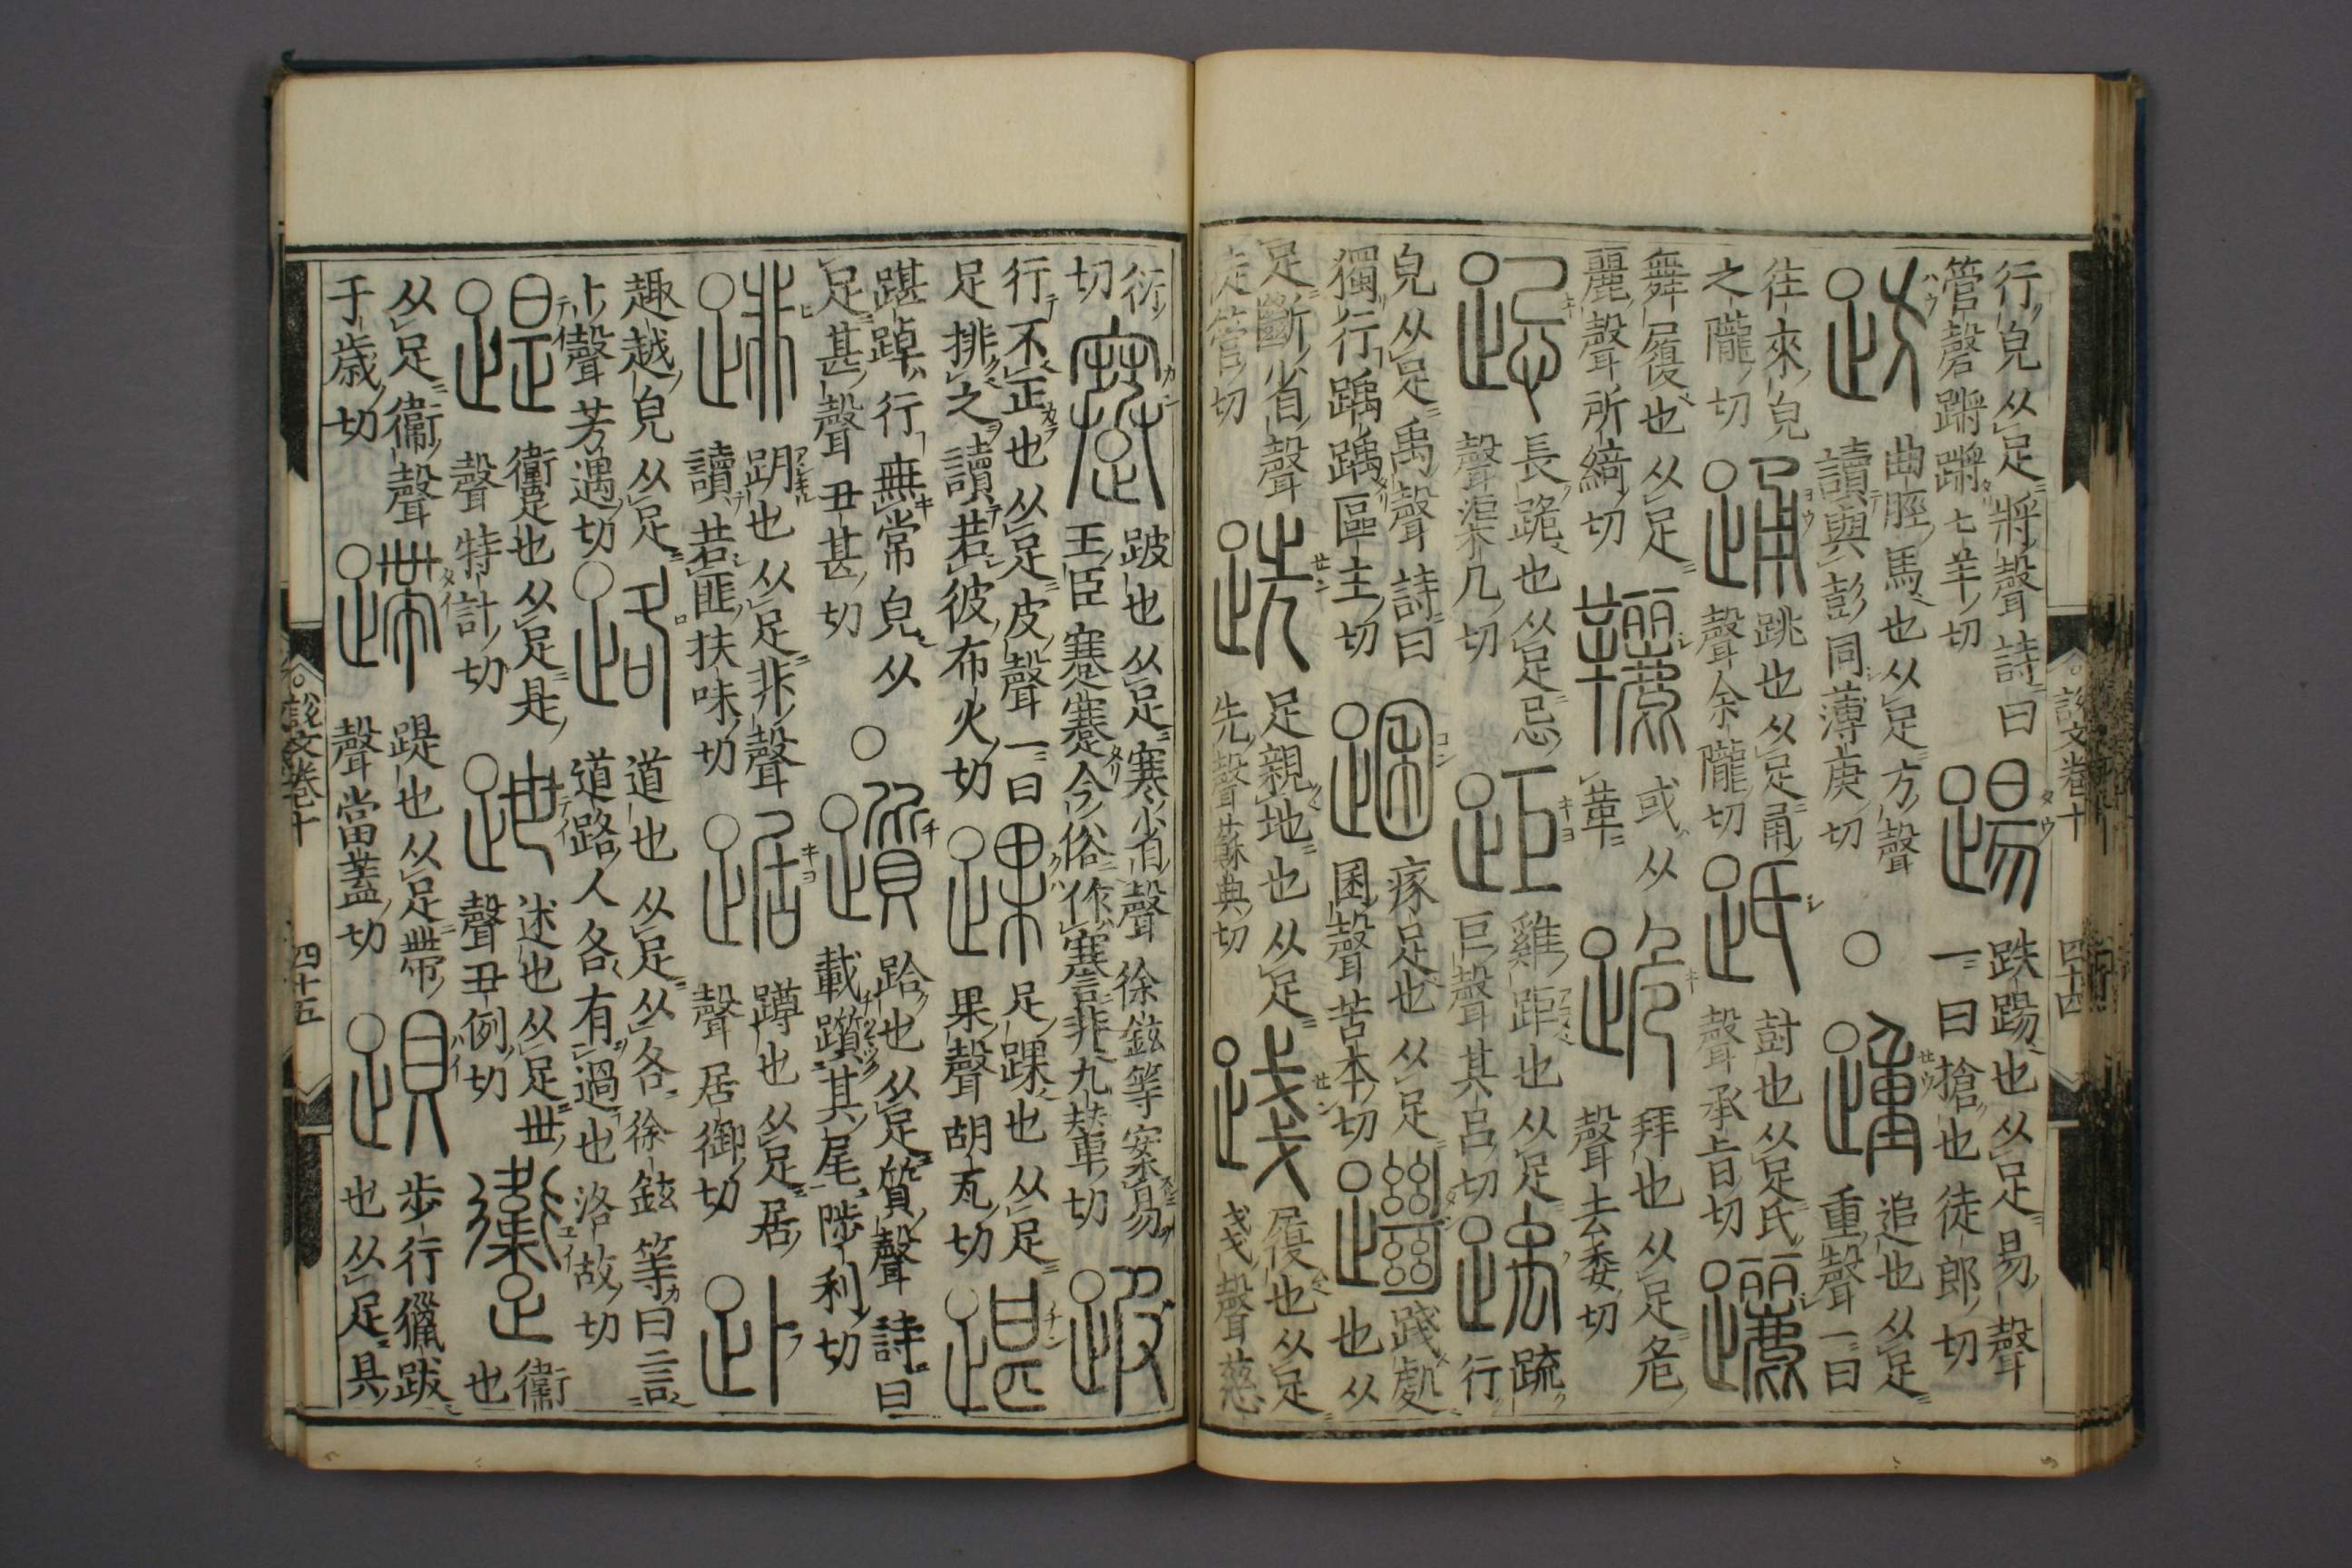 說文卷十 四十四
行皃从足將聲詩曰
管磬蹡蹡七羊切
踼
跌踼也从足昜聲
一曰搶也徒郎切
趽
曲脛馬也从足方聲
讀與彭同薄庚切
○
踵
追也从足
重聲一曰
往來皃
之隴切
踊
跳也从足甬
聲余隴切
䟡
尌也从足氏
聲承旨切
躧
舞履也从足
麗聲所綺切
或从
革
跪
拜也从足危
聲去委切
跽
長跪也从足忌
聲渠几切
距
雞距也从足
巨聲其呂切
疏
行
皃从足禹聲詩曰
獨行踽踽區主切
瘃足也从足
困聲苦本切
踐處
也从
足斷省聲
徒管切
跣
足親地也从足
先聲蘇典切
踐
履也从足
戔聲慈
衍
切
蹇
跛也从足寒省聲徐鉉等案易
王臣蹇蹇今俗作謇非九輦切
跛
行不正也从足皮聲一曰
足排之讀若彼布火切
踝
足踝也从足
果聲胡瓦切
踸
踸踔行無常皃从
足甚聲丑甚切
○
躓
跲也从足質聲詩曰
載躓其尾陟利切
跀也从足非聲
讀若匪扶味切
踞
蹲也从足居
聲居御切
趣越皃从足
卜聲芳遇切
路
道也从足从各徐鉉等曰言
道路人各有適也洛故切
踶
衞足也从足是
聲特計切
跇
述也从足世
聲丑例切
躗
衞
也
从足衞聲
于歳切
蹛
踶也从足帶
聲當蓋切
步行獵跋
也从足貝
說文卷十 四十五